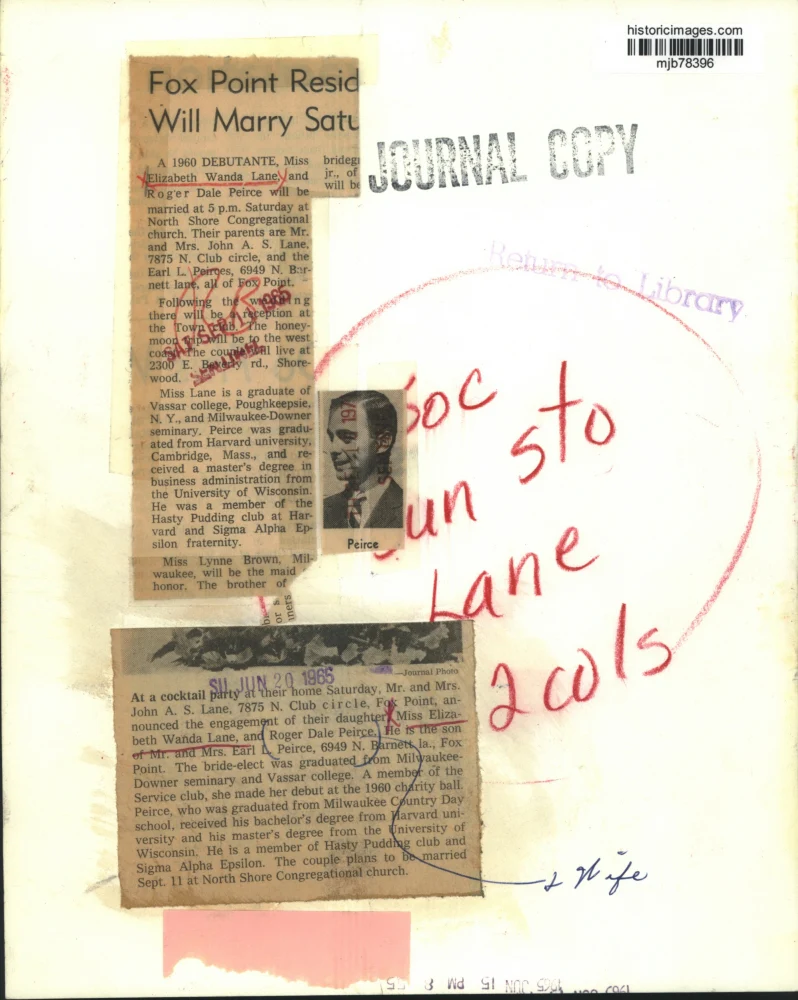 historicimages.com
mjb78396
JOURNAL COPY
Return to Library
Fox Point Resid
Will Marry Satu
A 1960 DEBUTANTE, Miss
Elizabeth Wanda Lane, and
Roger Dale Peirce will be
married at 5 p.m. Saturday at
North Shore Congregational
church. Their parents are Mr.
and Mrs. John A. S. Lane,
7875 N. Club circle, and the
Earl L. Peirces, 6949 N. Bar-
nett lane, all of Fox Point.
Following the wedding
there will be a reception at
the Town club. The honey-
moon trip will be to the west
coast. The couple will live at
2300 E. Beverly rd., Shore-
wood.
Miss Lane is a graduate of
Vassar college, Poughkeepsie,
N. Y., and Milwaukee-Downer
seminary. Peirce was gradu-
ated from Harvard university,
Cambridge, Mass., and re-
ceived a master's degree in
business administration from
the University of Wisconsin.
He was a member of the
Hasty Pudding club at Har-
vard and Sigma Alpha Ep-
silon fraternity.
Miss Lynne Brown, Mil-
waukee, will be the maid
honor. The brother of
bridegr
jr., of
will be
SAT SEP 11 1965
SENTINEL
Peirce
Soc
Sun sto
Lane
2 cols
—Journal Photo
SU JUN 20 1965
At a cocktail party at their home Saturday, Mr. and Mrs.
John A. S. Lane, 7875 N. Club circle, Fox Point, an-
nounced the engagement of their daughter, Miss Eliza-
beth Wanda Lane, and Roger Dale Peirce. He is the son
of Mr. and Mrs. Earl L. Peirce, 6949 N. Barnett la., Fox
Point. The bride-elect was graduated from Milwaukee-
Downer seminary and Vassar college. A member of the
Service club, she made her debut at the 1960 charity ball.
Peirce, who was graduated from Milwaukee Country Day
school, received his bachelor's degree from Harvard uni-
versity and his master's degree from the University of
Wisconsin. He is a member of Hasty Pudding club and
Sigma Alpha Epsilon. The couple plans to be married
Sept. 11 at North Shore Congregational church.
& Wife
1965 JUN 15 PM 8 55